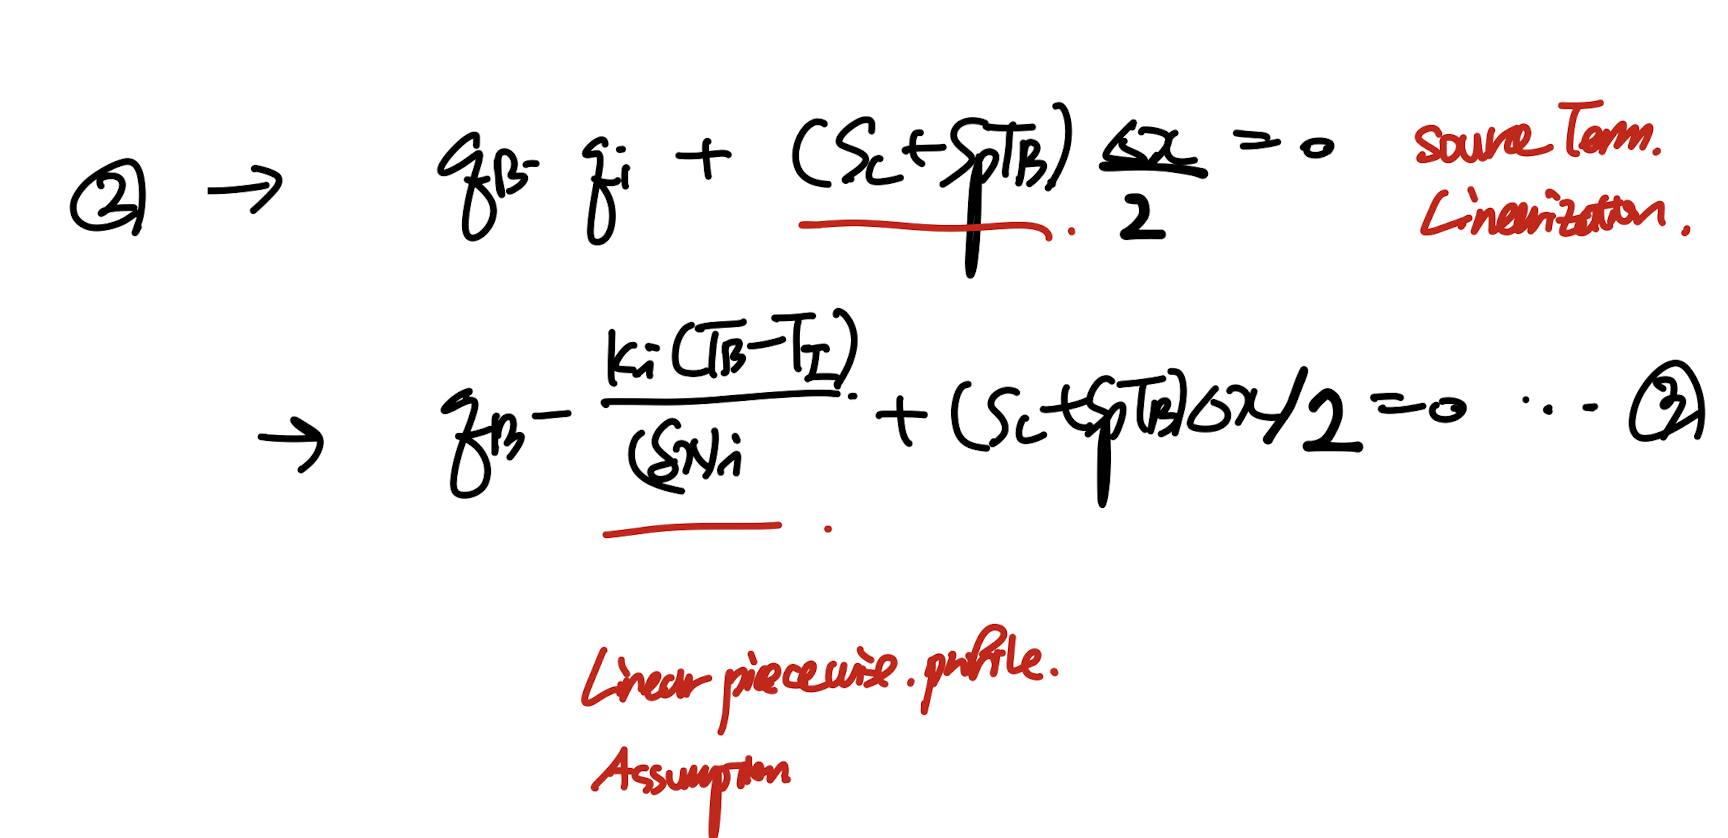 ② → q_B - q_i + (S_c + S_p T_B) Δx/2 = 0
Source Term.
Linearization.
→ q_B - k_i (T_B - T_I) / (δx)_i + (S_c + S_p T_B) Δx/2 = 0 ... ③
Linear piecewise. profile.
Assumption